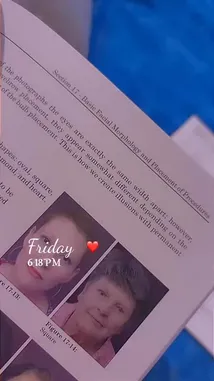 Section 17 - Basic Facial Morphology and Placement of Procedures
the photographs the eyes are exactly the same width apart; however,
placement, they appear somewhat different depending on the
of the bulb placement. This is how we create illusions with permanent
shapes: oval, square,
and heart.
to be
Friday
6:18 PM
Figure 17.14:
Square